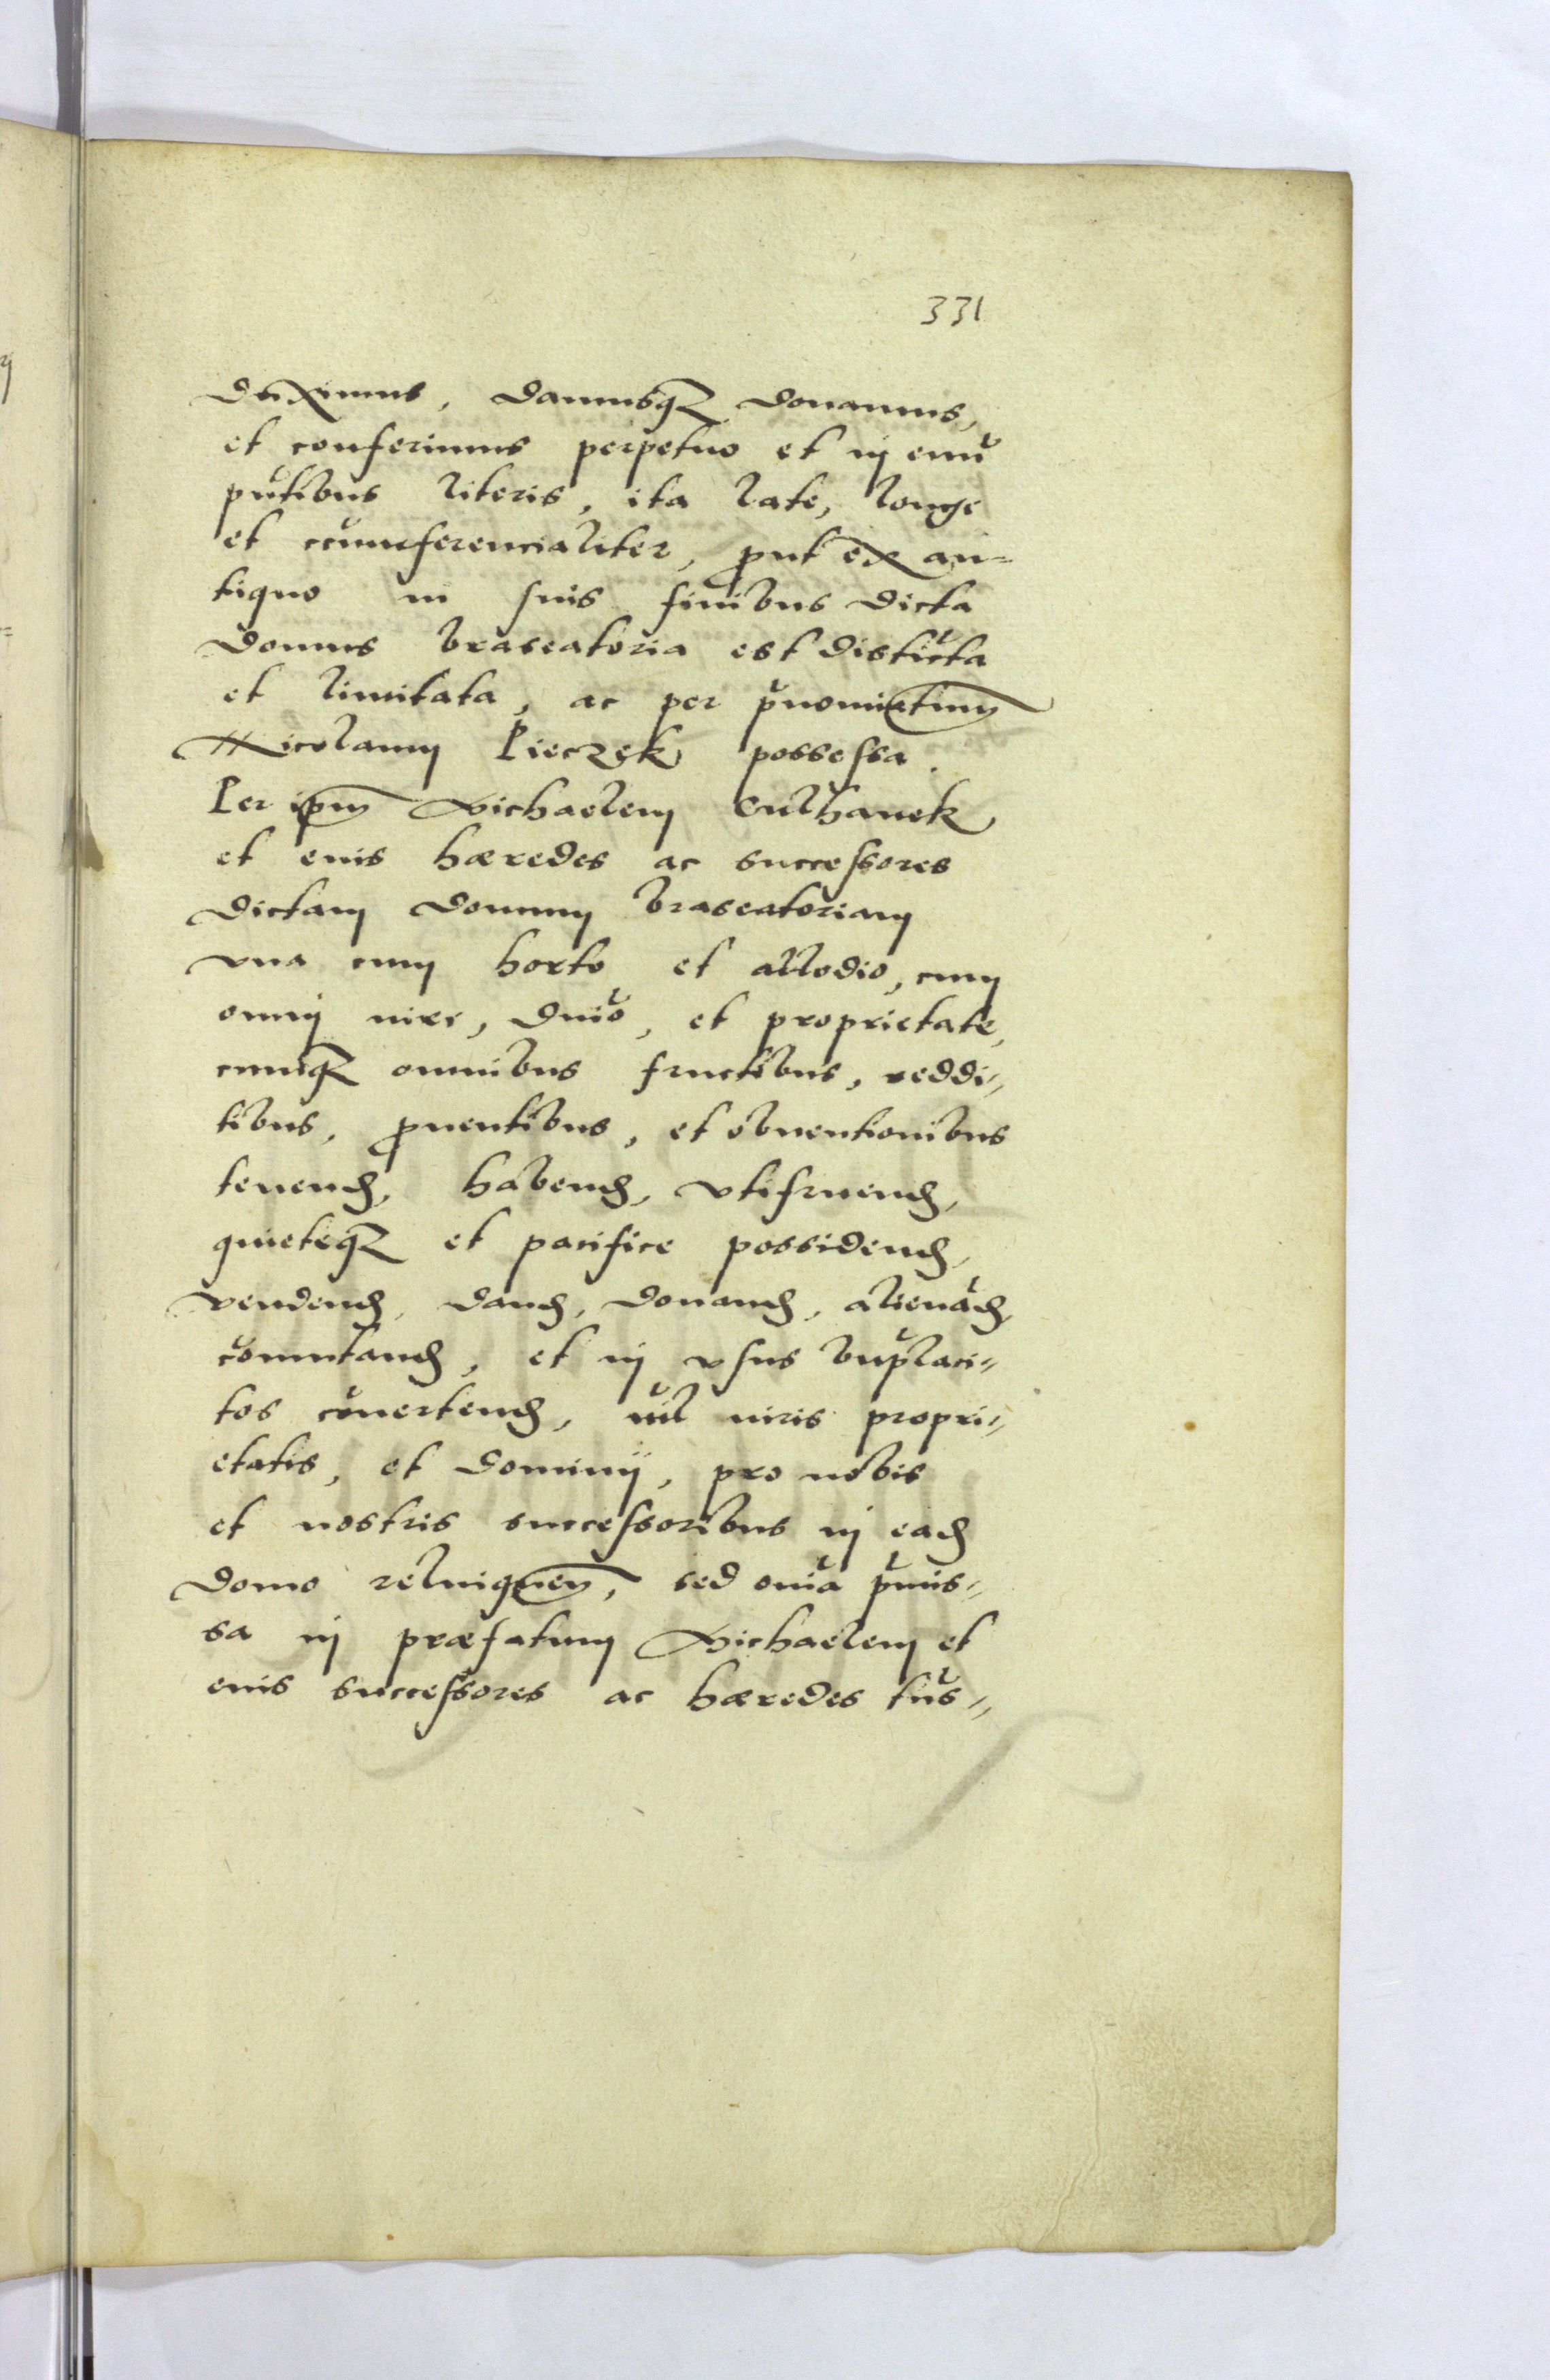 331
duximus, damusq[ue] donamus,
et conferimus perpetuo et in euu
pntibus literis, ita late, longe
et circumferencialiter, prout ex an=
tiquo in suis finibus dicta
domus braseatoria est disticta
et limitata, ac per pnominatum
Nicolaum Pieczek possessa.
Per ipm Michaelem Culhanek
et eius hæredes ac successores
dictam domum braseatoriam
vna cum horto et allodio, cum
omni iure, dnio, et proprietate,
cumq[ue] omnibus fructibus, reddi=
tibus, prouentibus, et obuentionibus
tenend, habend, vtifruend,
quieteq[ue] et pacifice possidend,
vendend, dand, donand, alienad,
comutand, et in vsus bnplaci=
tos conuertend, nil iuris propri=
etatis, et dominij, pro nobis
et nostris successoribus in ead
domo relinquen, sed onia pmis=
sa in præfatum Michaelem et
eius successores ac hæredes tns=